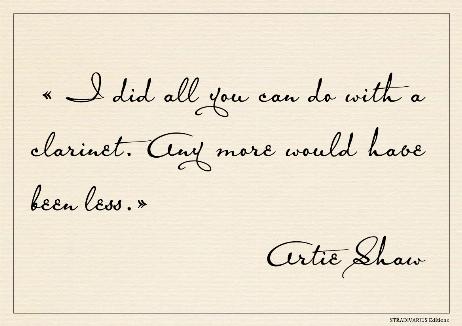 « I did all you can do with a
clarinet. Any more would have
been less. »
Artie Shaw
STRADIVARIUS Editions